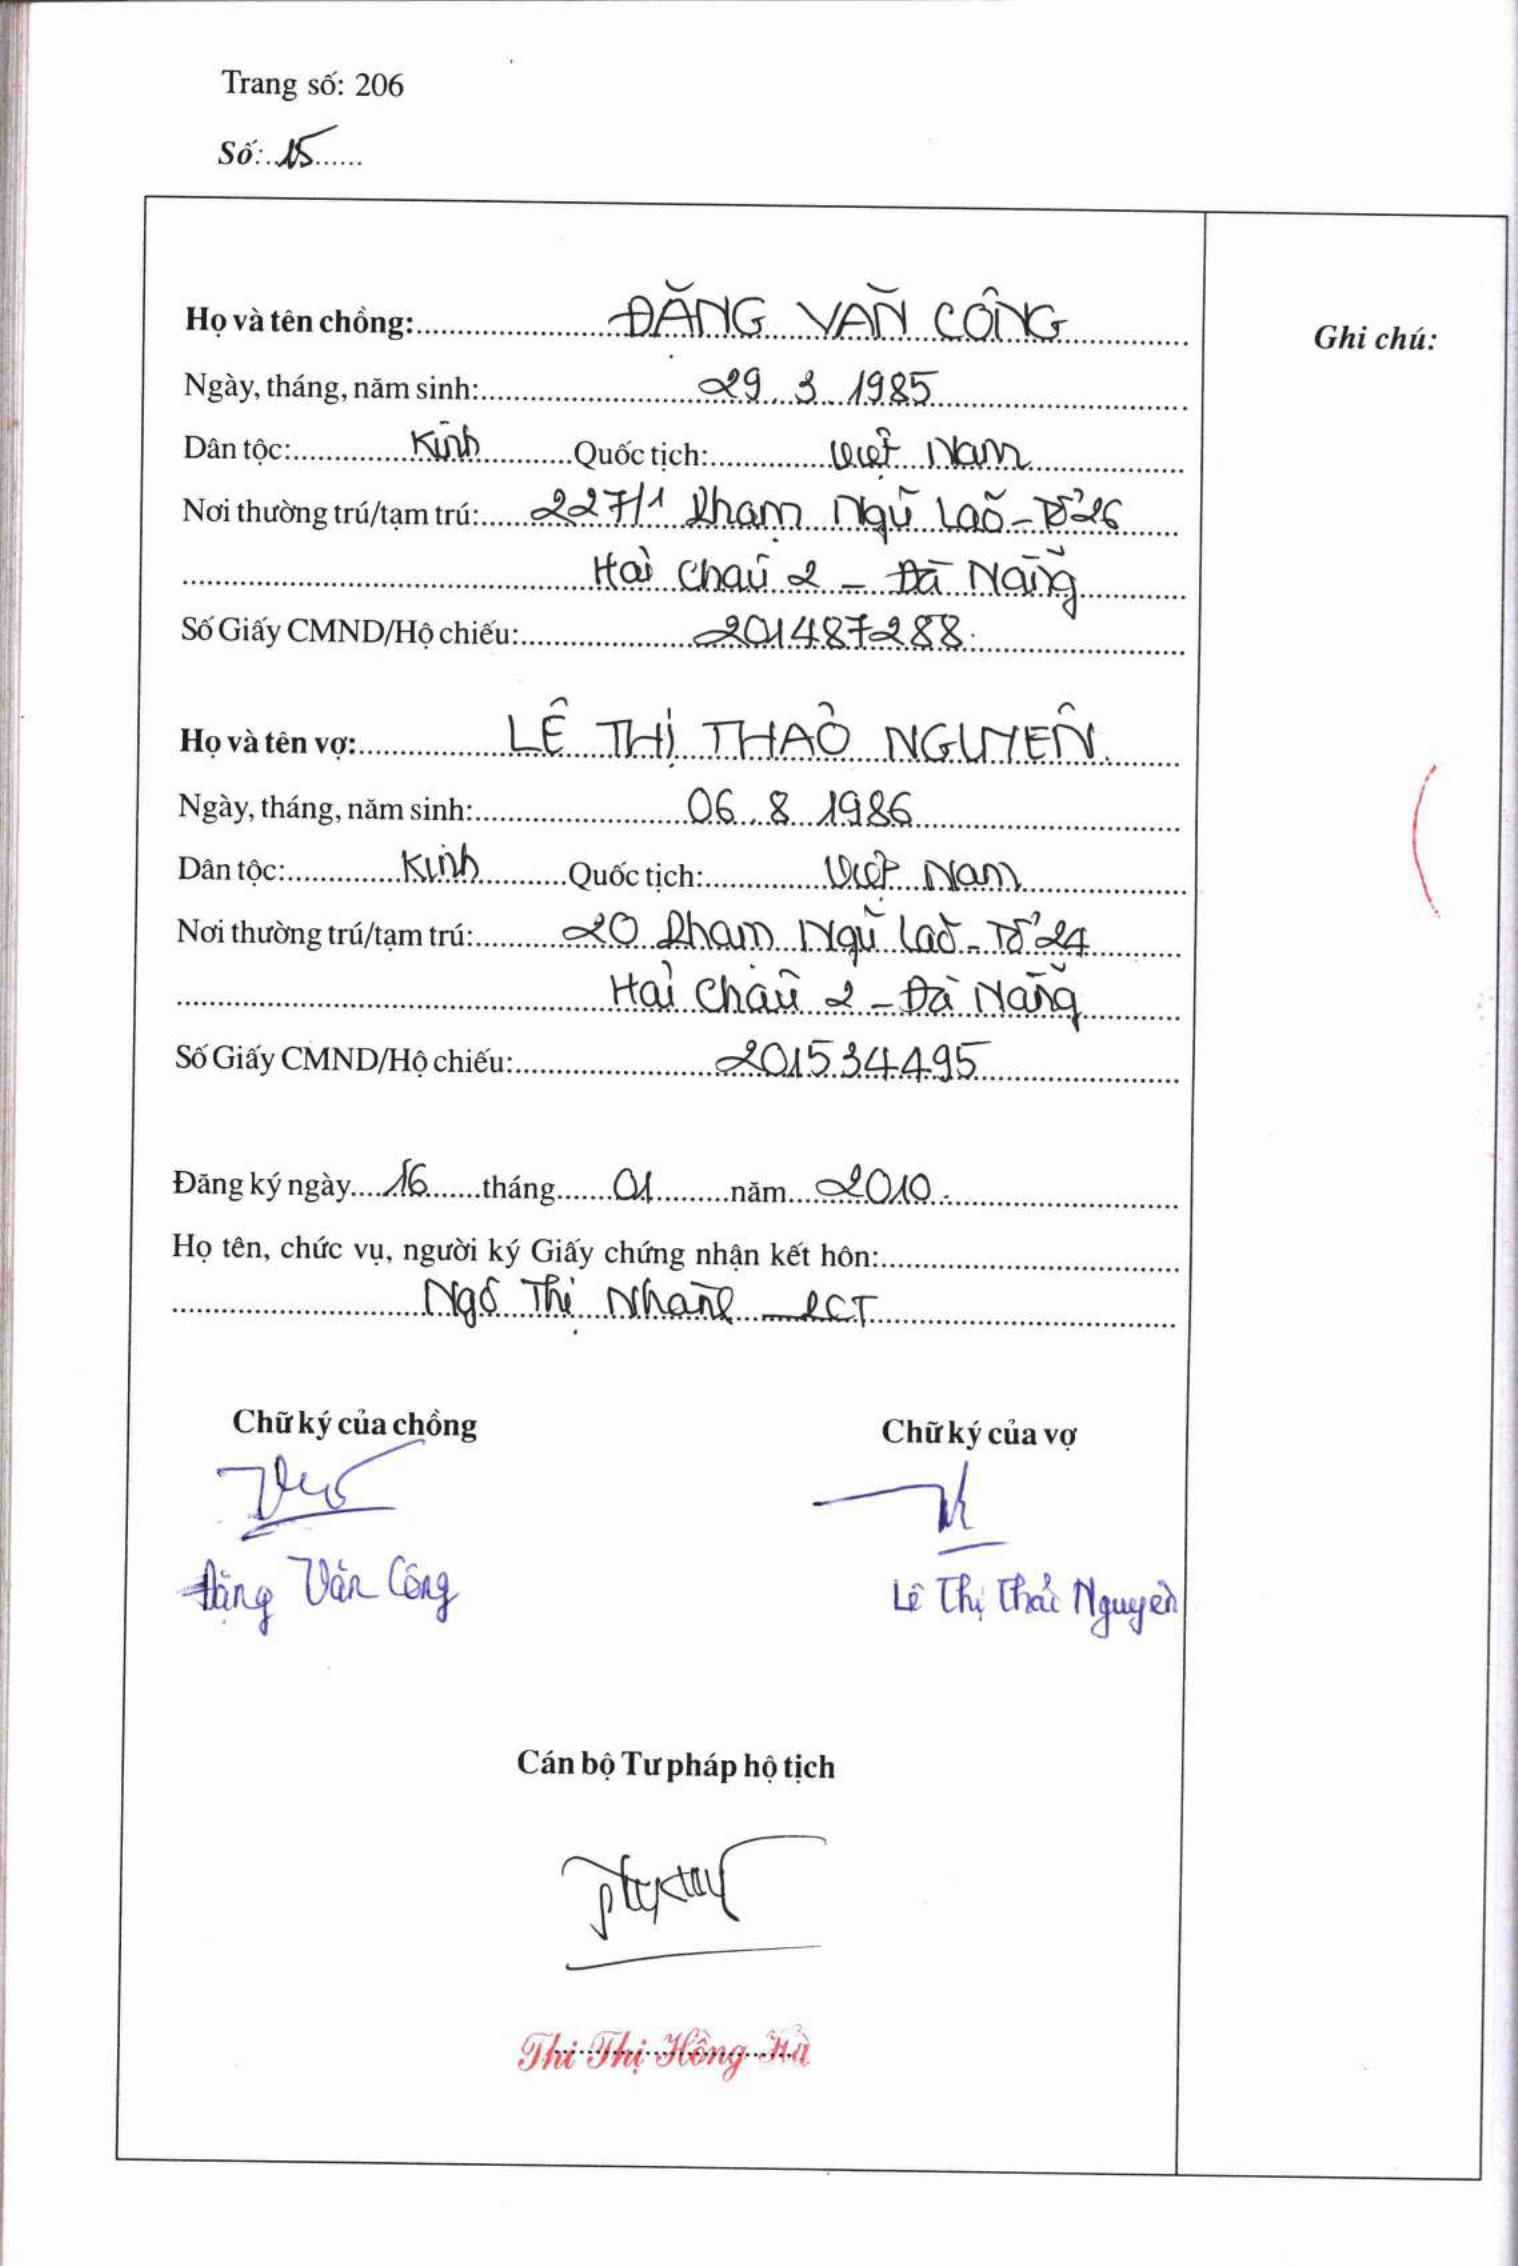 Trang số: 206
Số: 15
Họ và tên chồng: ĐẶNG VĂN CÔNG
Ghi chú:
Ngày, tháng, năm sinh: 29.3.1985
Dân tộc: Kinh Quốc tịch: Việt Nam
Nơi thường trú/tạm trú: 227/1 Phạm Ngũ Lão - Tổ 26
Hải Châu 2 - Đà Nẵng
Số Giấy CMND/Hộ chiếu: 201487288
Họ và tên vợ: LÊ THỊ THẢO NGUYÊN
Ngày, tháng, năm sinh: 06.8.1986
Dân tộc: Kinh Quốc tịch: Việt Nam
Nơi thường trú/tạm trú: 20 Phạm Ngũ Lão - Tổ 24
Hải Châu 2 - Đà Nẵng
Số Giấy CMND/Hộ chiếu: 201534495
Đăng ký ngày 16 tháng 01 năm 2010
Họ tên, chức vụ, người ký Giấy chứng nhận kết hôn:
Ngô Thị - PCT
Chữ ký của chồng
Chữ ký của vợ
Đặng Văn Công
Lê Thị Thảo Nguyên
Cán bộ Tư pháp hộ tịch
Thi Thị Hồng Hà